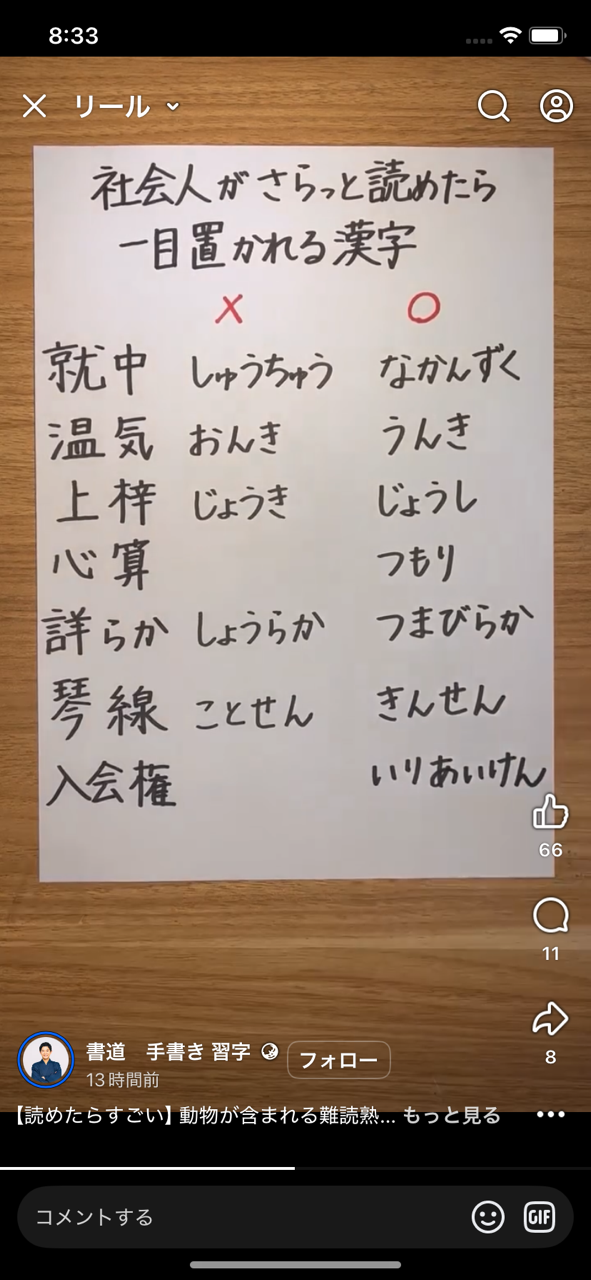 8:33
リール
社会人がさらっと読めたら
一目置かれる漢字
× ○
就中 しゅうちゅう なかんずく
温気 おんき うんき
上梓 じょうき じょうし
心算 つもり
詳らか しょうらか つまびらか
琴線 ことせん きんせん
入会権 いりあいけん
66
11
8
書道 手書き 習字
フォロー
13時間前
【読めたらすごい】動物が含まれる難読熟... もっと見る
コメントする
GIF